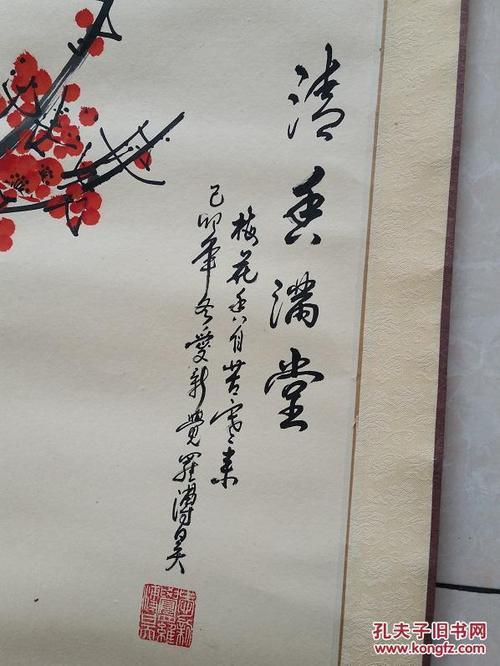 清香滿堂
梅花香自苦寒来
己卯年冬愛新覺羅溥昊
孔夫子旧书网
www.kongfz.com